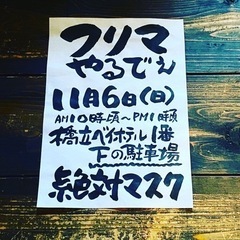 フリマ
やるでぇ
11月6日(日)
AM10時頃〜PM1時頃
橋立ベイホテル1番
下の駐車場
絶対マスク